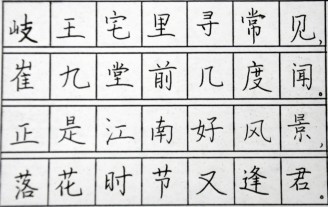 歧王宅里寻常见，
崔九堂前几度闻。
正是江南好风景，
落花时节又逢君。